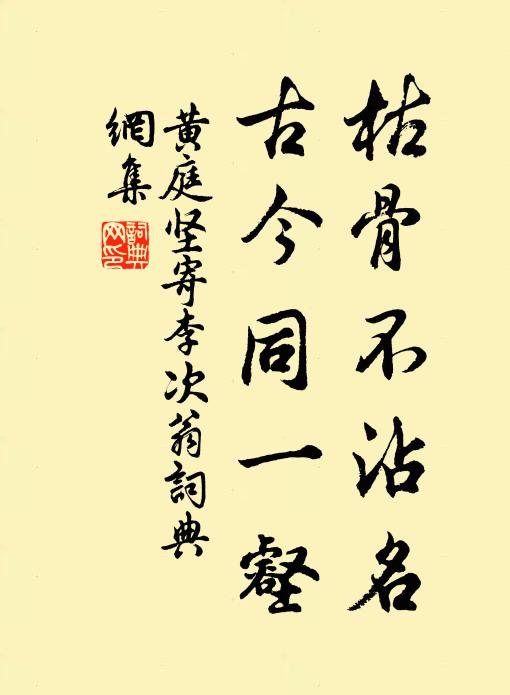 枯骨不沾名
古今同一壑
黄庭坚寄李次翁詞典
網集
詞典
网印